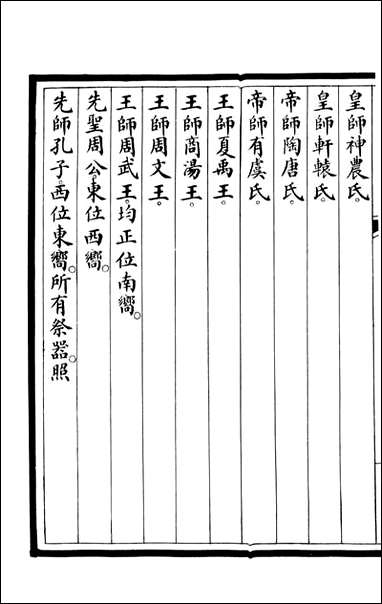 皇師神農氏。
皇師軒轅氏。
帝師陶唐氏。
帝師有虞氏。
王師夏禹王。
王師商湯王。
王師周文王。
王師周武王。均正位南嚮。
先聖周公。東位西嚮。
先師孔子。西位東嚮。所有祭器。照